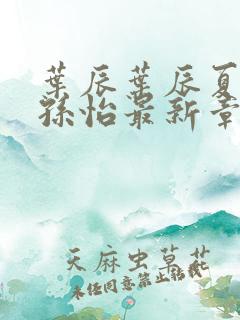 葉辰葉辰夏
孫怡最新章
天麻虫草花
未经同意禁止转载